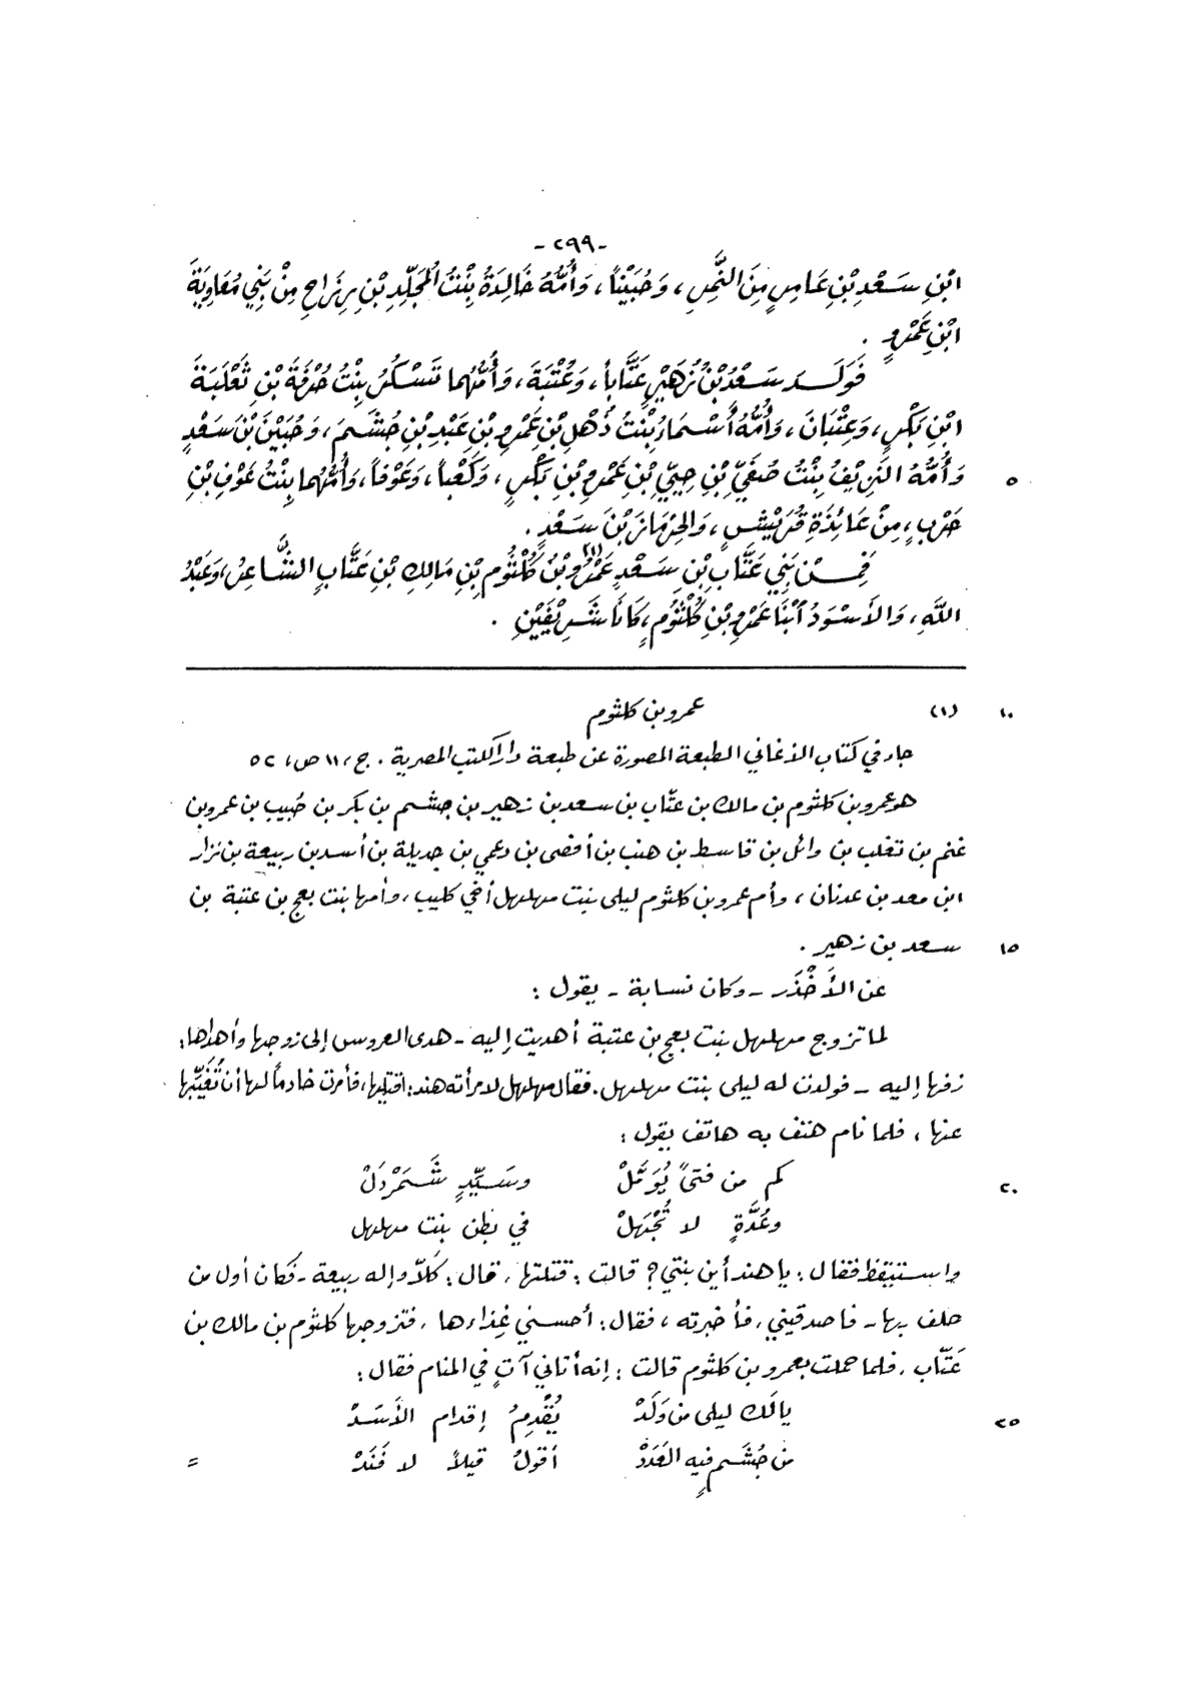 -٢٩٩-
ابْنِ سَعْدِ بْنِ عَامِرٍ مِنَ النَّمِرِ، وَحُبَيْناً، وَأُمُّهُ خَالِدَةُ بِنْتُ الْمُجَلِّدِ بْنِ رِزَاحِ مِنْ بَنِي مُعَاوِيَةَ
ابْنِ عَمْرٍو .
فَوَلَدَ سَعْدُ بْنُ زُهَيْرٍ عَتَّاباً، وَعُتْبَةَ، وَأُمُّهُمَا تَسْكُرُ بِنْتُ حُرْفَةَ بْنِ ثَعْلَبَةَ
ابْنِ بَكْرٍ، وَعِتْبَانَ، وَأُمُّهُ أَسْمَاءُ بِنْتُ ذُهْلِ بْنِ عَمْرِو بْنِ عَبْدِ بْنِ جُشَمَ، وَحُبَيْنَ بْنَ سَعْدٍ
٥ وَأُمُّهُ النَّزِيْفُ بِنْتُ صُفَيِّ بْنِ حِيَيِّ بْنِ عَمْرِو بْنِ بَكْرٍ، وَكَعْباً، وَعَوْفاً، وَأُمُّهُمَا بِنْتُ عَوْفِ بْنِ
حَرْبٍ، مِنْ عَائِذَةِ قُرَيْشٍ، وَالحِرْمَازَ بْنَ سَعْدٍ .
فَمِنْ بَنِي عَتَّابِ بْنِ سَعْدٍ عَمْرُو(١) بْنُ كُلْثُومِ بْنِ مَالِكِ بْنِ عَتَّابٍ الشَّاعِرُ، وَعَبْدُ
اللَّهِ، وَالأَسْوَدُ ابْنَا عَمْرِو بْنِ كُلْثُومٍ، كَانَا شَرِيْفَيْنِ .
١٠ (١) عمرو بن كلثوم
جاء في كتاب الأغاني الطبعة المصورة عن طبعة دار الكتب المصرية . ج، ١١ ص، ٥٢
هو عمرو بن كلثوم بن مالك بن عتّاب بن سعد بن زهير بن جشم بن بكر بن حُبيب بن عمرو بن
غنم بن تغلب بن وائل بن قاسط بن هنب بن أفصى بن دعمي بن جديلة بن أسد بن ربيعة بن نزار
ابن معد بن عدنان، وأم عمرو بن كلثوم ليلى بنت مهلهل أخي كليب، وأمها بنت بعج بن عتبة بن
١٥ سعد بن زهير .
عن الأَخْذَر - وكان نسابة - يقول :
لما تزوج مهلهل بنت بعج بن عتبة أهديت إليه - هدى العروس إلى زوجها وأهداها:
زفها إليه - فولدت له ليلى بنت مهلهل. فقال مهلهل لامرأته هند: اقتليها، فأمرت خادماً لها أن تُغَيِّبها
عنها، فلما نام هتف به هاتف يقول :
٢٠ كم من فتىً يُؤَمَّلْ وسَيِّدٍ شَمَرْدَلْ
وعُدَّةٍ لا تُجْهَلْ في بطن بنت مهلهل
واستيقظ فقال : يا هند أين بنتي؟ قالت : قتلتها، قال : كَلاّ وإله ربيعة - فكان أول من
حلف بها - فاصدقيني، فأخبرته، فقال : أحسني غِذاءها، فتزوجها كلثوم بن مالك بن
عَتّاب، فلما حملت بعمرو بن كلثوم قالت : إنه أتاني آتٍ في المنام فقال :
٢٥ يالَك ليلى من وَلَدْ يُقْدِمُ إقدام الأَسَدْ
من جُشَمٍ فيه العَدَدْ أقولُ قيلاً لا فَنَدْ =